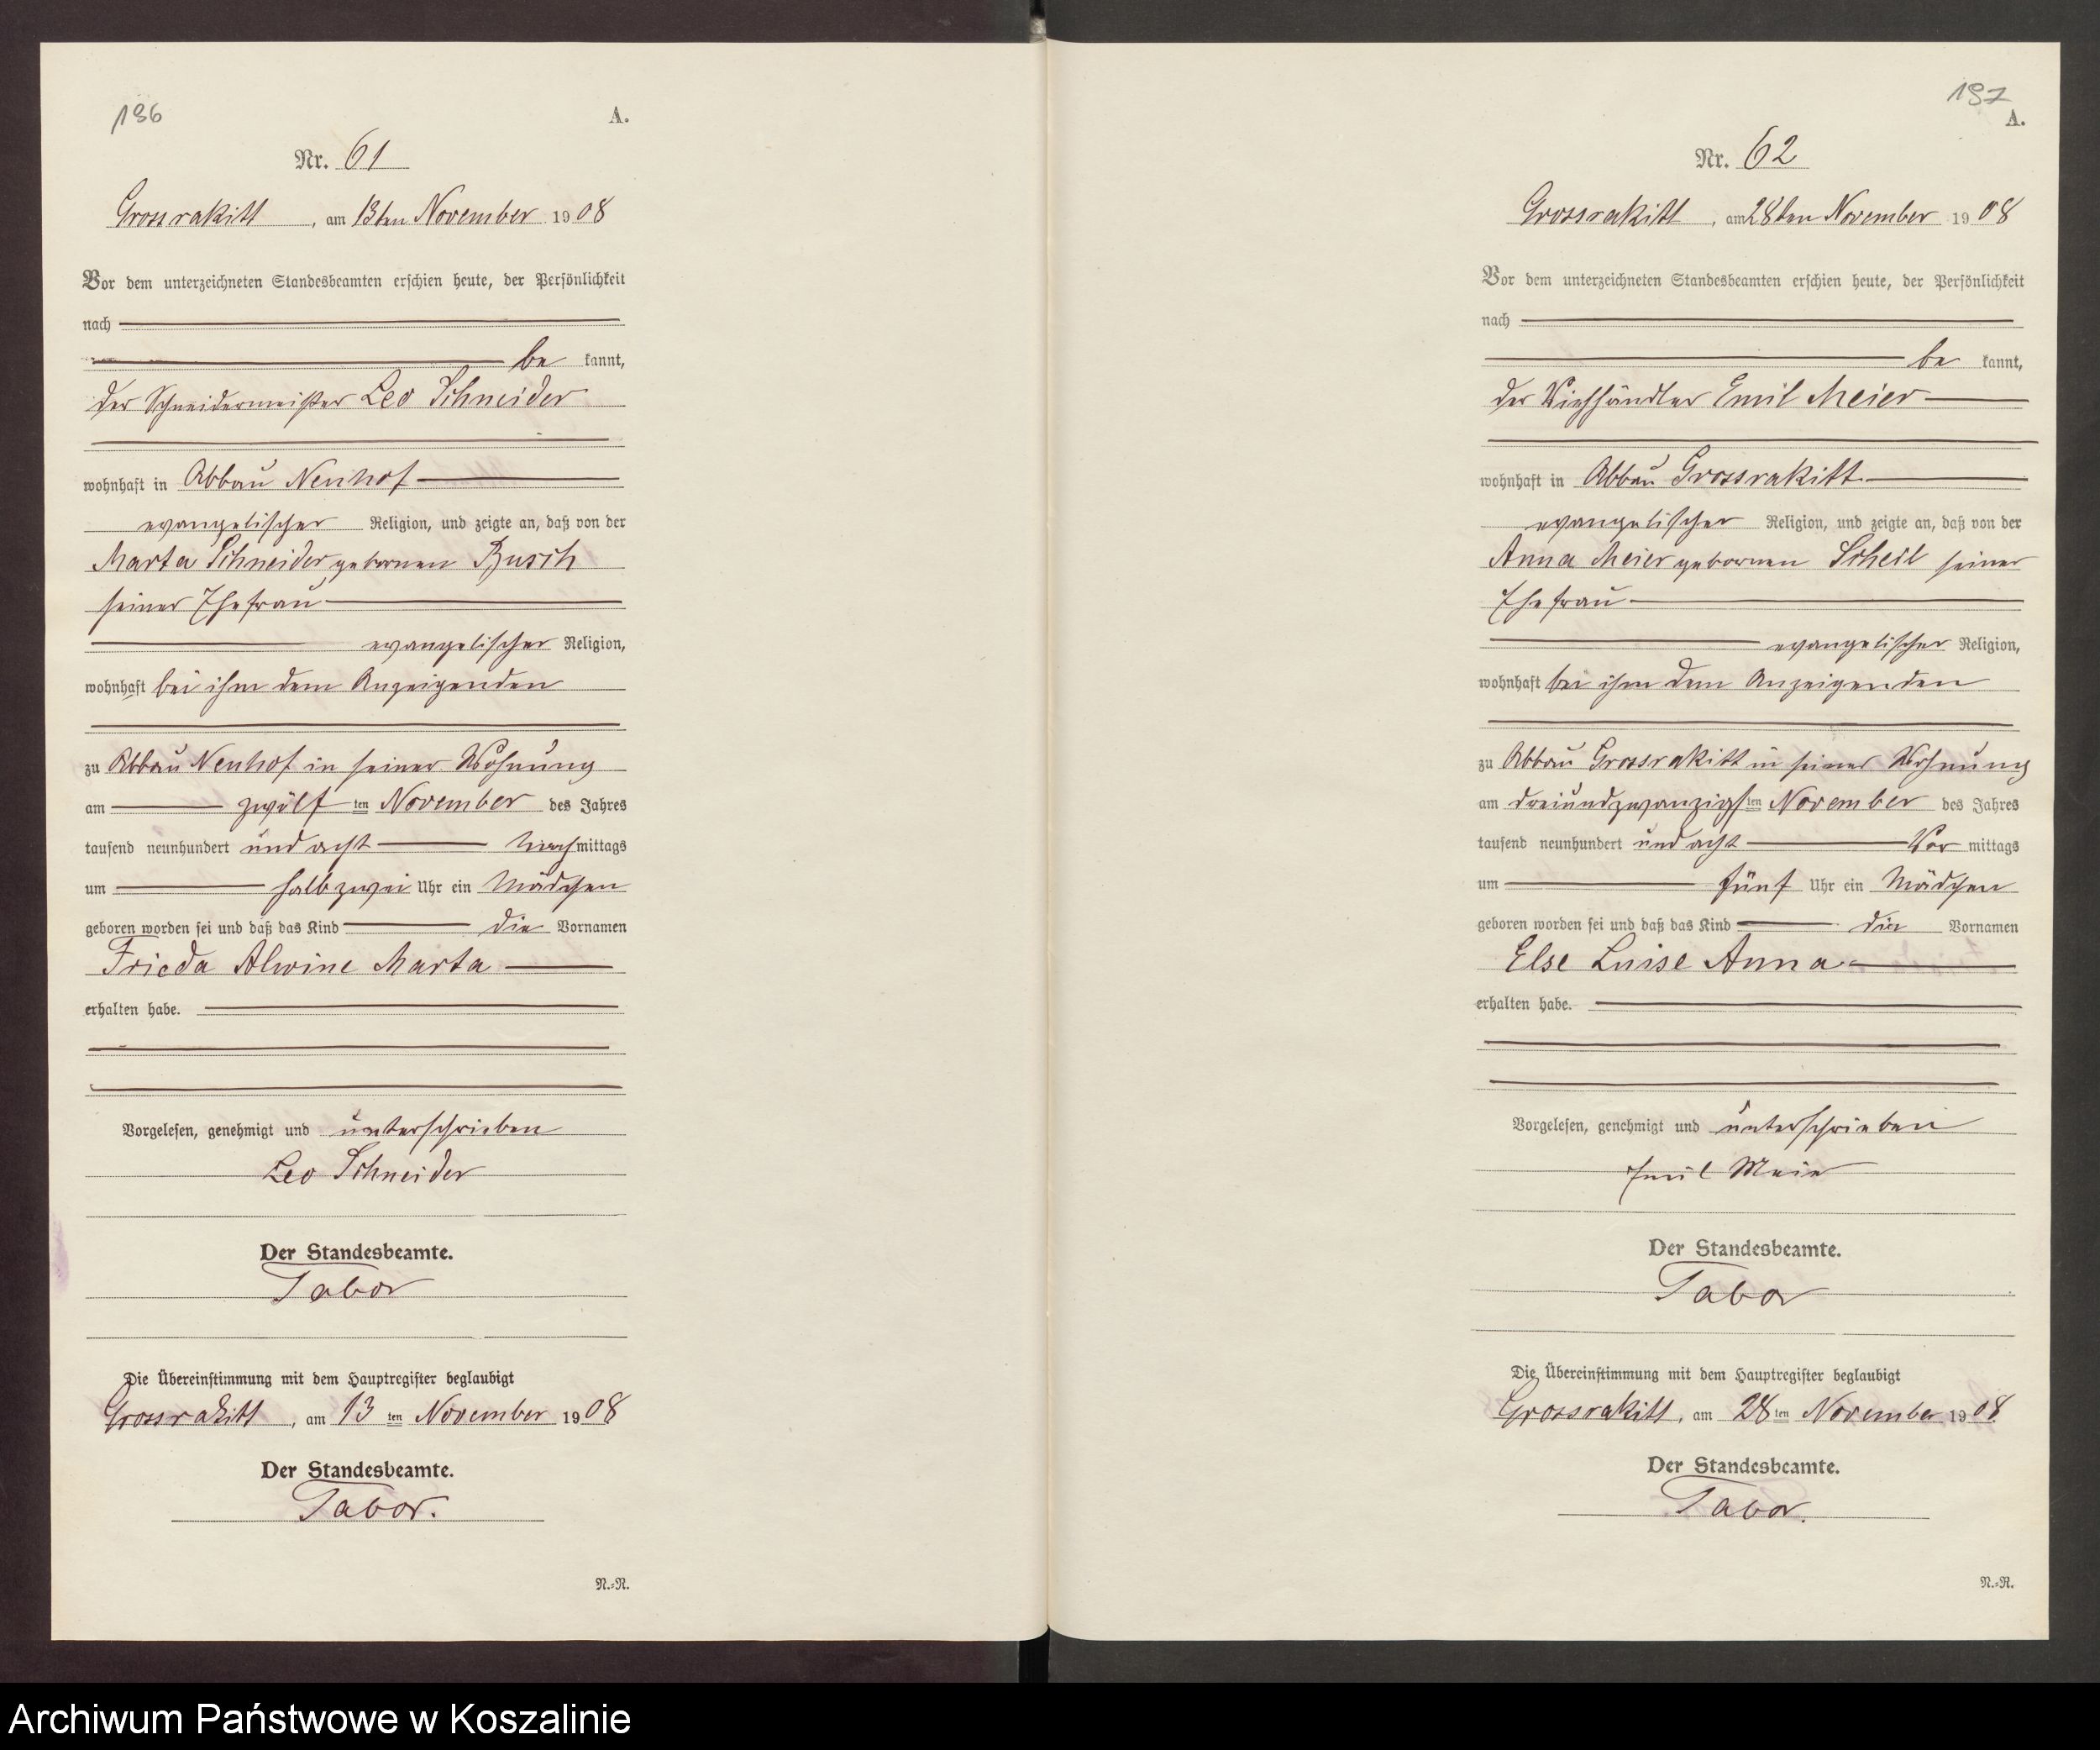 196
A.
Nr. 61
Grossrakitt, am 13ten November 1908
Vor dem unterzeichneten Standesbeamten erschien heute, der Persönlichkeit
nach
be kannt,
der Schneidermeister Leo Schneider
wohnhaft in Abbau Neuhof
evangelischer Religion, und zeigte an, daß von der
Marta Schneider gebornen Busch
seiner Ehefrau
evangelischer Religion,
wohnhaft bei ihm dem Anzeigenden
zu Abbau Neuhof in seiner Wohnung
am zwölf ten November des Jahres
tausend neunhundert und acht Nachmittags
um halb zwei Uhr ein Mädchen
geboren worden sei und daß das Kind die Vornamen
Frieda Alwine Marta
erhalten habe.
Vorgelesen, genehmigt und unterschrieben
Leo Schneider
Der Standesbeamte.
Tabor
Die Übereinstimmung mit dem Hauptregister beglaubigt
Grossrakitt, am 13 ten November 1908
Der Standesbeamte.
Tabor.
N.=R.
197
A.
Nr. 62
Grossrakitt, am 28ten November 1908
Vor dem unterzeichneten Standesbeamten erschien heute, der Persönlichkeit
nach
be kannt,
der Viehhändler Emil Meier
wohnhaft in Abbau Grossrakitt
evangelischer Religion, und zeigte an, daß von der
Anna Meier gebornen Scheil seiner
Ehefrau
evangelischer Religion,
wohnhaft bei ihm dem Anzeigenden
zu Abbau Grossrakitt in seiner Wohnung
am dreiundzwanzigsten November des Jahres
tausend neunhundert und acht Vor mittags
um fünf Uhr ein Mädchen
geboren worden sei und daß das Kind die Vornamen
Else Luise Anna
erhalten habe.
Vorgelesen, genehmigt und unterschrieben
Emil Meier
Der Standesbeamte.
Tabor
Die Übereinstimmung mit dem Hauptregister beglaubigt
Grossrakitt, am 28 ten November 1908.
Der Standesbeamte.
Tabor.
N.=R.
Archiwum Państwowe w Koszalinie